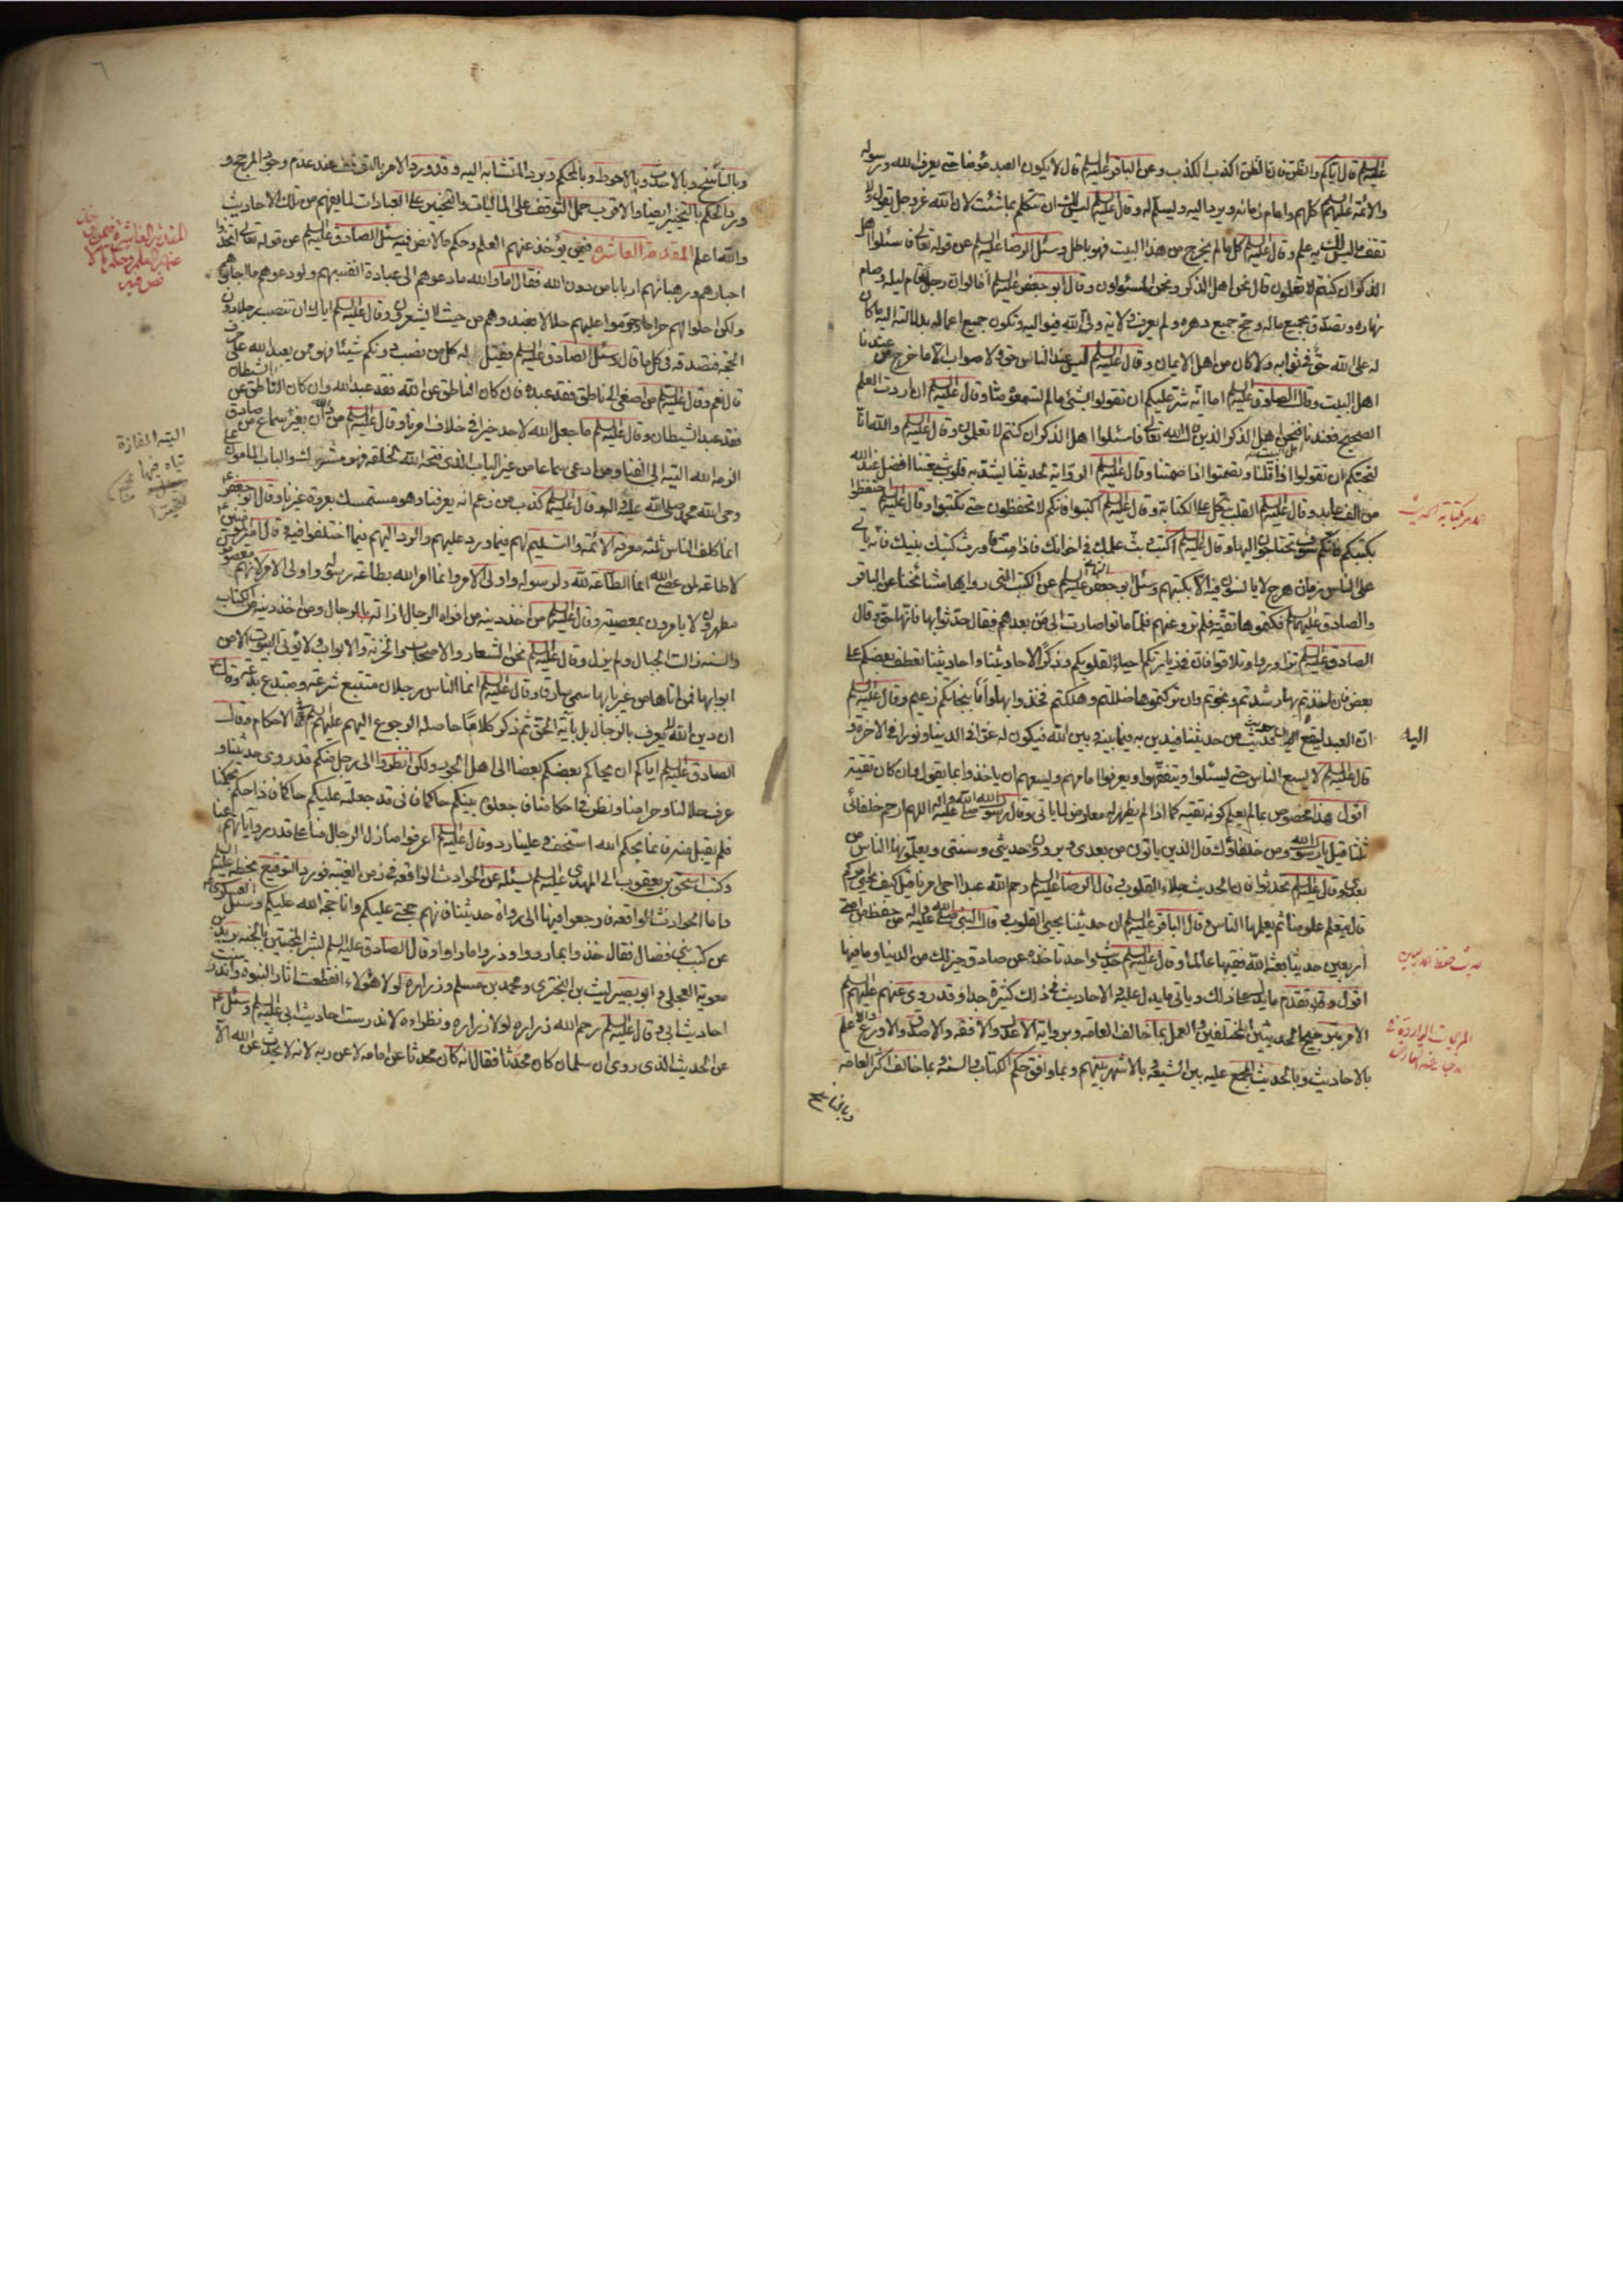 عليه السلام قال اياكم والظن فان الظن اكذب الكذب وعن الباقر عليه السلام قال لا يكون العبد مؤمنا حتى يعرف الله ورسوله
والائمة عليهم السلام كلهم وامام زمانه ويرد اليه ويسلم له وقال عليه السلام ليس لك ان تتكلم بما شئت لان الله عز وجل يقول ولا
تقف ما ليس لك به علم وقال عليه السلام كل ما لم يخرج من هذا البيت فهو باطل وسئل الرضا عليه السلام عن قوله تعالى فاسئلوا اهل
الذكر ان كنتم لا تعلمون قال نحن اهل الذكر ونحن المسئولون وقال ابو جعفر عليه السلام اما لو ان رجلا قام ليله وصام
نهاره وتصدق بجميع ماله وحج جميع دهره ولم يعرف ولاية ولى الله فيواليه وتكون جميع اعماله بدلالته اليه ما كان
له على الله حق فى ثوابه ولا كان من اهل الايمان وقال عليه السلام ليس عند الناس حق ولا صواب الا ما خرج من عندنا
اهل البيت وقال الصادق عليه السلام اما انه شر عليكم ان تقولوا بشئ ما لم تسمعوه منا وقال عليه السلام ان اردت العلم
الصحيح فعندنا فنحن اهل الذكر الذين قال الله تعالى فاسئلوا اهل الذكر ان كنتم لا تعلمون وقال عليه السلام والله انا
لنحبكم ان تقولوا اذا قلنا وتصمتوا اذا صمتنا وقال عليه السلام الراوية لحديثنا يشد به قلوب شيعتنا افضل عند الله
من الف عابد وقال عليه السلام القلب يتكل على الكتابة وقال عليه السلام اكتبوا فانكم لا تحفظون حتى تكتبوا وقال عليه السلام احتفظوا
بكتبكم فانكم سوف تحتاجون اليها وقال عليه السلام اكتب وبث علمك فى اخوانك فاذا مت فاورث كتبك بنيك فانه ياتى
على الناس زمان هرج لا يانسون فيه الا بكتبهم وسئل ابو جعفر الثانى عليه السلام عن الكتب التى رواها مشائخنا عن الباقر
والصادق عليهما السلام فكتموها تقية فلم ترو عنهم فلما ماتوا صارت الى من بعدهم فقال حدثوا بها فانها حق وقال
الصادق عليه السلام تزاوروا وتلاقوا فان فى زيارتكم احياء لقلوبكم وذكرا لاحاديثنا واحاديثنا تعطف بعضكم على
بعض فان اخذتم بها رشدتم ونجوتم وان تركتموها ضللتم وهلكتم فخذوا بها وانا بنجاتكم زعيم وقال عليه السلام
قال عليه السلام لا يسع الناس حتى يسئلوا ويتفقهوا ويعرفوا امامهم ويسعهم ان ياخذوا بما يقول وان كان تقية
اقول هذا مخصوص بما لم يعلم كونه تقية كما اذا لم يظهر له معارض لما ياتى وقال رسول الله صلى الله عليه واله اللهم ارحم خلفائى
ثلثا قيل يا رسول الله ومن خلفاؤك قال الذين ياتون من بعدى ويروون حديثى وسنتى ويعلمونها الناس من
بعدى وقال عليه السلام تحدثوا فان الحديث جلاء القلوب قال الرضا عليه السلام رحم الله عبدا احيى امرنا قيل كيف يحيى امركم
قال يتعلم علومنا ثم يعلمها الناس وقال الباقر عليه السلام ان حديثنا يحيى القلوب قال النبى صلى الله عليه واله من حفظ من امتى
اربعين حديثا بعثه الله فقيها عالما وقال عليه السلام حديث واحد تاخذه عن صادق خير لك من الدنيا وما فيها
اقول وقد تقدم ما يدل على ذلك وياتى ما يدل عليه والاحاديث فى ذلك كثيرة جدا وقد روى عنهم عليهم السلام
الامر بترجيح الحديثين المختلفين والعمل بما خالف العامة وبرواية الاعدل والافقه والاصدق والاورع والاعلم
بالاحاديث وبالحديث المجمع عليه بين الشيعة وبالاشهر بينهم وبما وافق حكم الكتاب والسنة بما خالف اكثر العامة
وبالناسخ
اليه
وبالناسخ وبالاحدث وبالاحوط وبالمحكم ويرد المتشابه اليه وقد ورد الامر بالتوقف عند عدم وجود المرجح و
ورد الحكم بالتخيير ايضا والاقرب حمل التوقف على الماليات والتخيير على العبادات لما يفهم من تلك الاحاديث
والله اعلم المقدمة العاشرة فيمن يؤخذ عنهم العلم وحكم ما لا نص فيه سئل الصادق عليه السلام عن قوله تعالى اتخذوا
احبارهم ورهبانهم اربابا من دون الله فقال اما والله ما دعوهم الى عبادة انفسهم ولو دعوهم ما اجابوهم
ولكن احلوا لهم حراما وحرموا عليهم حلالا فعبدوهم من حيث لا يشعرون وقال عليه السلام اياك ان تنصب رجلا دون
الحجة فتصدقه فى كل ما قال وسئل الصادق عليه السلام فقيل له كل من نصب دونكم شيئا فهو ممن يعبد الله على حرف
قال نعم وقال عليه السلام من اصغى الى ناطق فقد عبده فان كان الناطق عن الله فقد عبد الله وان كان الناطق عن الشيطان
فقد عبد الشيطان وقال عليه السلام ما جعل الله لاحد خيرا فى خلاف امرنا وقال عليه السلام من دان الله بغير سماع من صادق
الزمه الله التيه الى الفناء ومن ادعى سماعا من غير الباب الذى فتحه الله لخلقه فهو مشرك وذلك الباب المامون على
وحى الله محمد صلى الله عليه واله وقال عليه السلام كذب من زعم انه يعرفنا وهو مستمسك بعروة غيرنا وقال ابو جعفر
انما كلف الناس ثلثة معرفة الائمة والتسليم لهم فيما ورد عليهم والرد اليهم فيما اختلفوا فيه قال امير المؤمنين
لا طاعة لمن عصى الله انما الطاعة لله ولرسوله واولى الامر وانما امر الله بطاعة رسوله واولى الامر لانهم معصومون
مطهرون لا يامرون بمعصيته وقال عليه السلام من اخذ دينه من افواه الرجال ازالته الرجال ومن اخذ دينه من الكتاب
والسنة زالت الجبال ولم يزل وقال عليه السلام نحن الشعار والاصحاب والخزنة والابواب ولا يؤتى البيوت الا من
ابوابها فمن اتاها من غير بابها سمى سارقا وقال عليه السلام انما الناس رجلان متتبع شرعة ومبتدع بدعة وقال
ان دين الله لا يعرف بالرجال بل باية الحق ثم ذكر كلاما حاصله الرجوع اليهم عليهم السلام فى الاحكام وقال
الصادق عليه السلام اياكم ان يحاكم بعضكم بعضا الى اهل الجور ولكن انظروا الى رجل منكم قد روى حديثنا و
عرف حلالنا وحرامنا ونظر فى احكامنا فاجعلوه بينكم حاكما فانى قد جعلته عليكم حاكما فاذا حكم بحكمنا
فلم يقبل منه فانما بحكم الله استخف وعلينا رد وقال عليه السلام اعرفوا منازل الرجال منا على قدر رواياتهم عنا
وكتب اسحق بن يعقوب الى المهدى عليه السلام يسئله عن الحوادث الواقعة فى زمن الغيبة فورد التوقيع بخطه عليه السلام
واما الحوادث الواقعة فارجعوا فيها الى رواة حديثنا فانهم حجتى عليكم وانا حجة الله عليكم وسئل العسكرى
عن كتب بنى فضال فقال خذوا بما رووا وذروا ما راوا وقال الصادق عليه السلام بشر المخبتين بالجنة بريد بن
معوية العجلى وابو بصير ليث بن البخترى ومحمد بن مسلم وزرارة لولا هؤلاء انقطعت اثار النبوة واندرست
احاديث ابى وقال عليه السلام رحم الله زرارة لولا زرارة ونظراؤه لاندرست احاديث ابى عليه السلام وسئل
عن الحديث الذى روى ان سلمان كان محدثا فقال انه كان محدثا عن امامه لا عن ربه لانه لا يحدث عن الله الا
المقدمة العاشرة فيمن يؤخذ
عنهم العلم وحكم ما لا
نص فيه
التيه المفازة
يتاه فيها